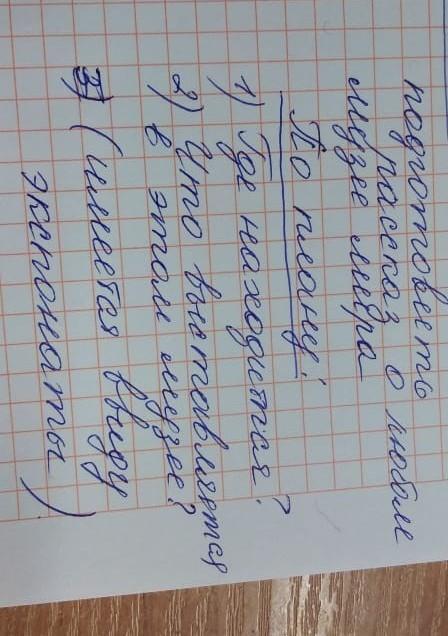 подготовить
рассказ о любие
музее мира
По плану:
1) Где находится?
2) Что выставляется
в этом музее?
(имеется ввиду
экспонаты)